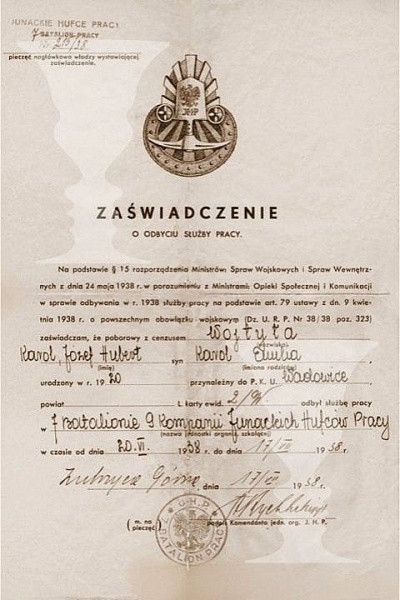 JUNACKIE HUFCE PRACY
7 BATALION PRACY
Nr 213/38
pieczęć nagłówkowa władzy wystawiającej
zaświadczenie.
JHP
ZAŚWIADCZENIE
O ODBYCIU SŁUŻBY PRACY.
Na podstawie § 15 rozporządzenia Ministrów: Spraw Wojskowych i Spraw Wewnętrz-
nych z dnia 24 maja 1938 r. w porozumieniu z Ministrami: Opieki Społecznej i Komunikacji
w sprawie odbywania w r. 1938 służby pracy na podstawie art. 79 ustawy z dn. 9 kwiet-
nia 1938 r. o powszechnym obowiązku wojskowym (Dz. U. R. P. Nr 38/38 poz. 323)
zaświadczam, że poborowy z cenzusem Wojtyła
(nazwisko)
Karol, Józef Hubert syn Karol Emilia,
(imię) (imiona rodziców)
urodzony w r. 1920 przynależny do P. K. U. Wadowice,
powiat L. karty ewid. odbył służbę pracy
w 7 Batalionie 9 Kompanii Junackich Hufców Pracy
(nazwa jednostki organiz. szkolącej)
w czasie od dn. 20.VI. 1938 r. do dnia 17/VII 1938 r.
Zubrzyca Górna, dnia 17/VII 1938 r.
(m. na pieczęć)
podpis Komendanta jedn. org. J. H. P.
J.H.P.
BATALION PRACY